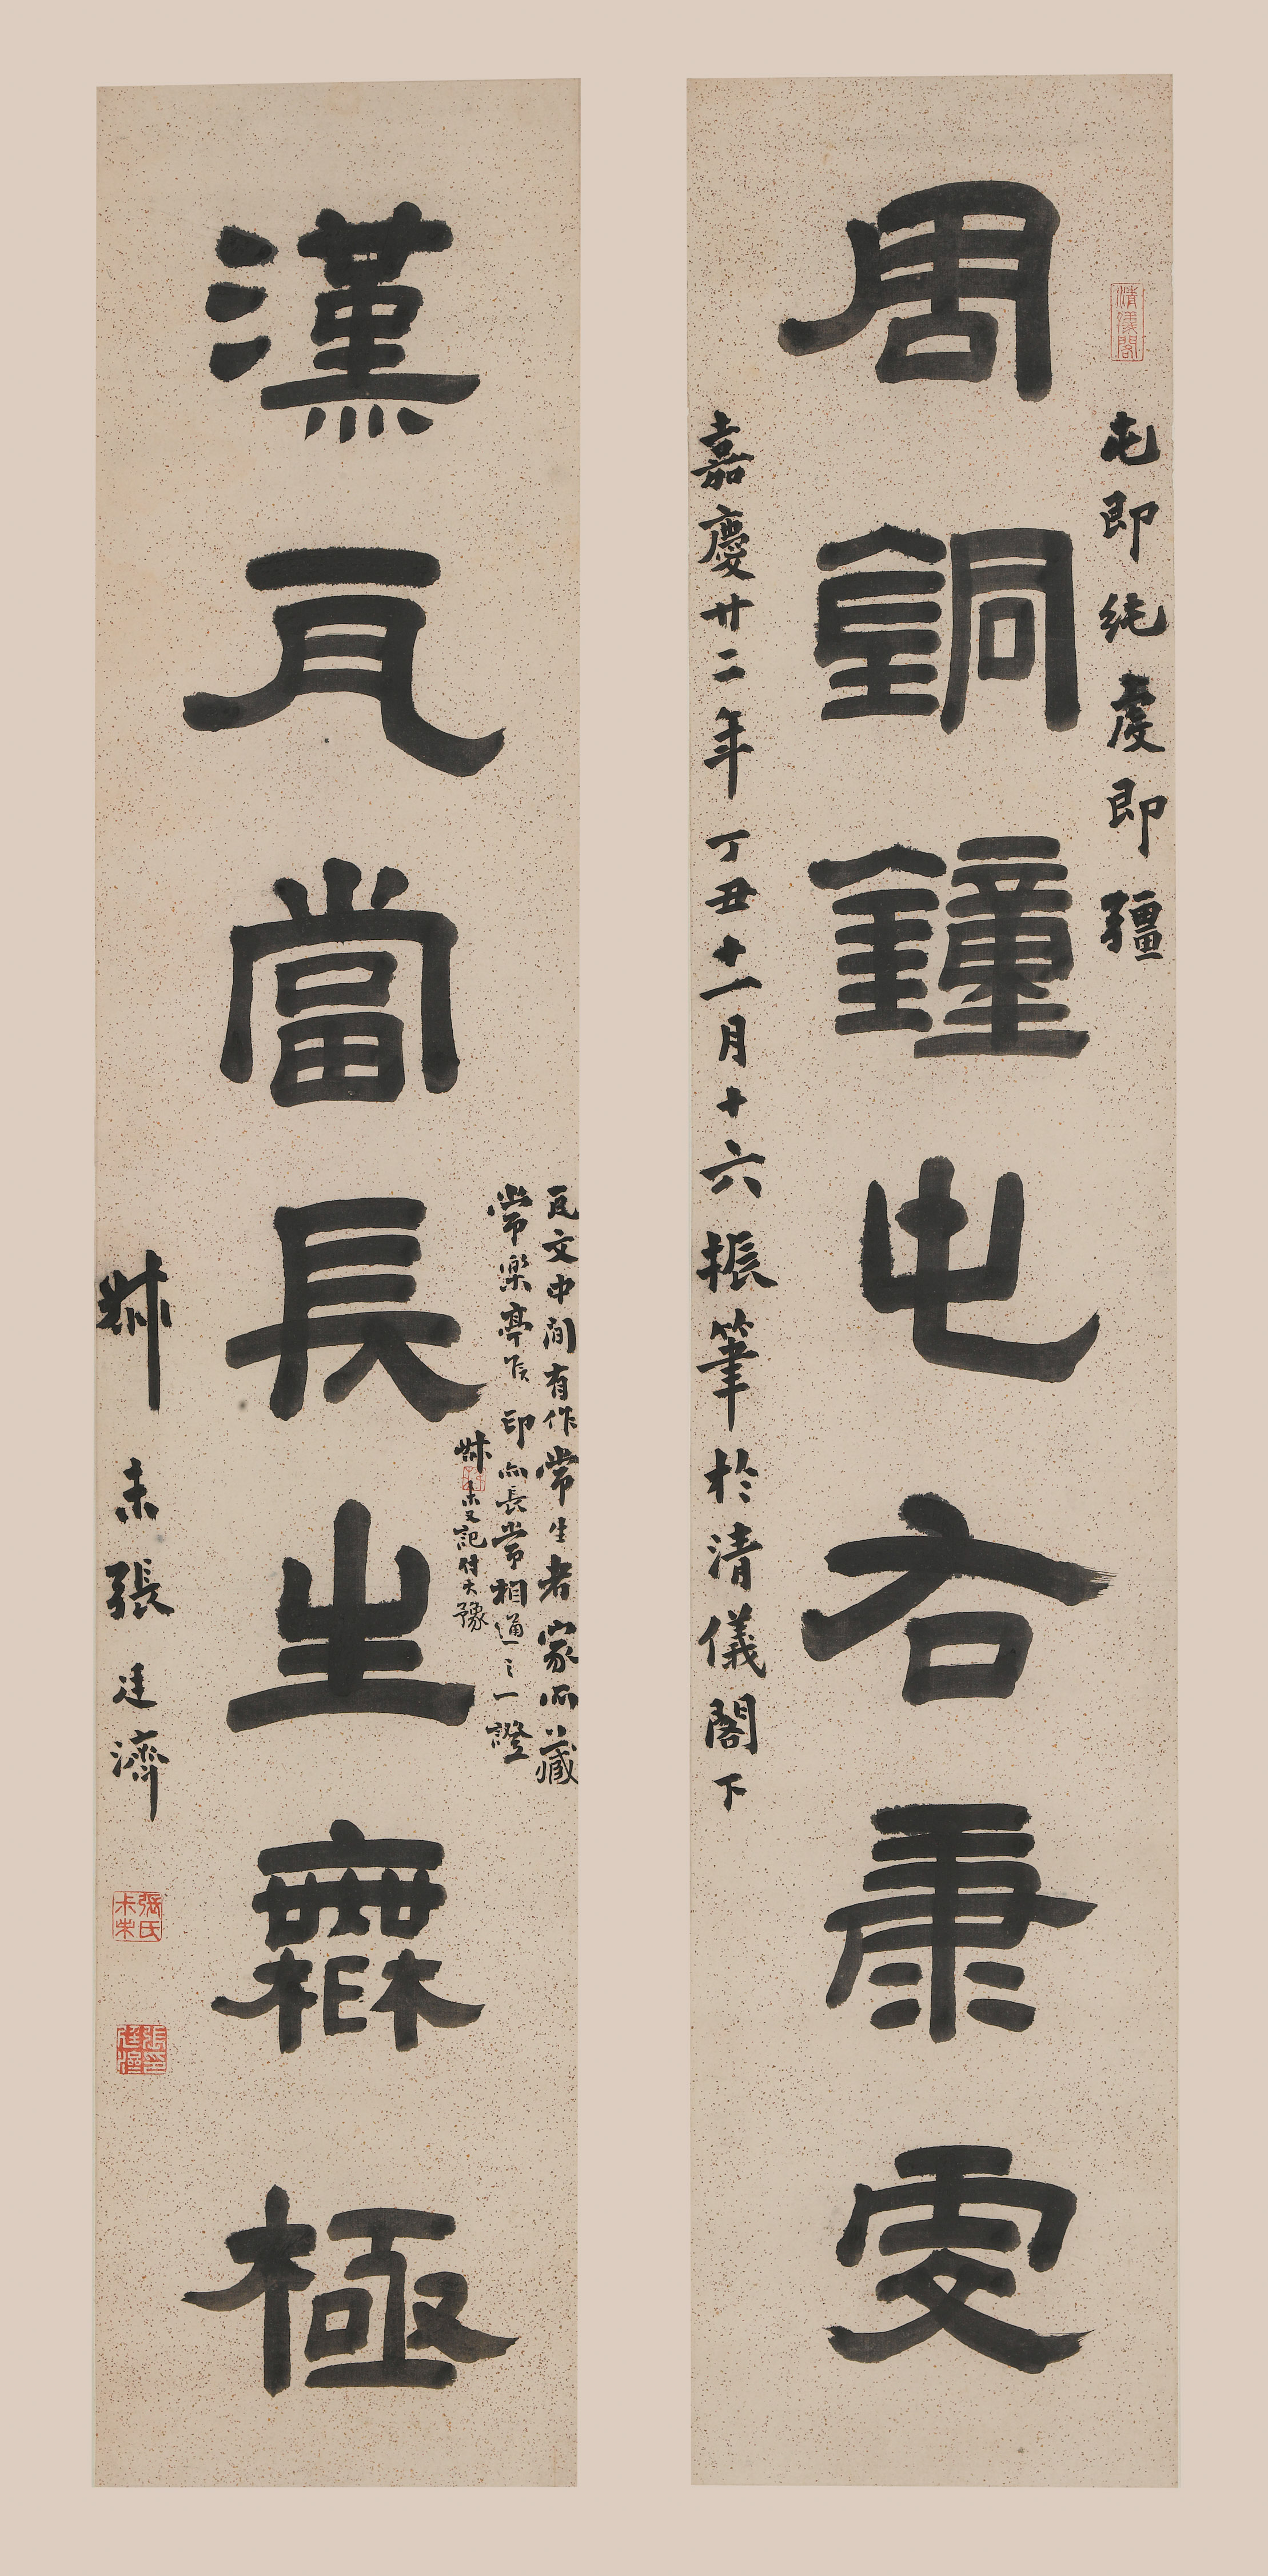 清儀閣
屯即純虔即疆
周銅鐘屯右康虔
嘉慶廿二年丁丑十一月十六振筆於清儀閣下
瓦文中間有作常生者家所藏
常樂亭侯印亦長常相通之一證
叔未又記付大豫
漢瓦當長生橆極
叔未張廷濟
張氏尗未
張廷濟印